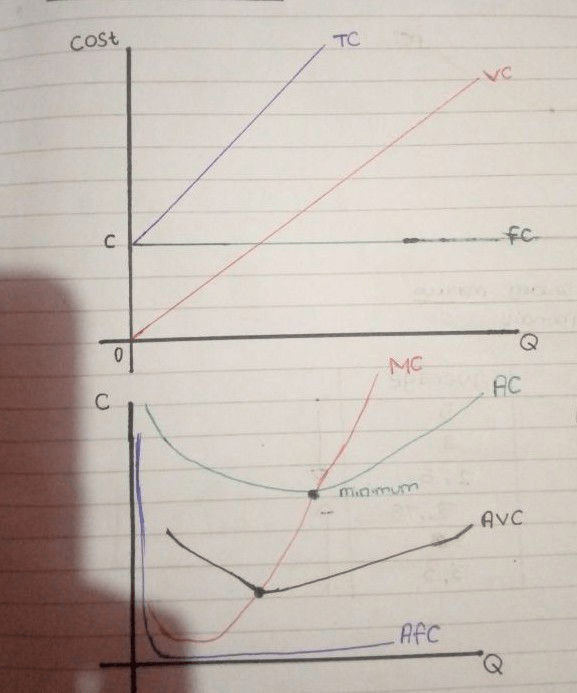 Cost
TC
VC
C
FC
0
Q
MC
C
AC
minimum
AVC
AFC
Q